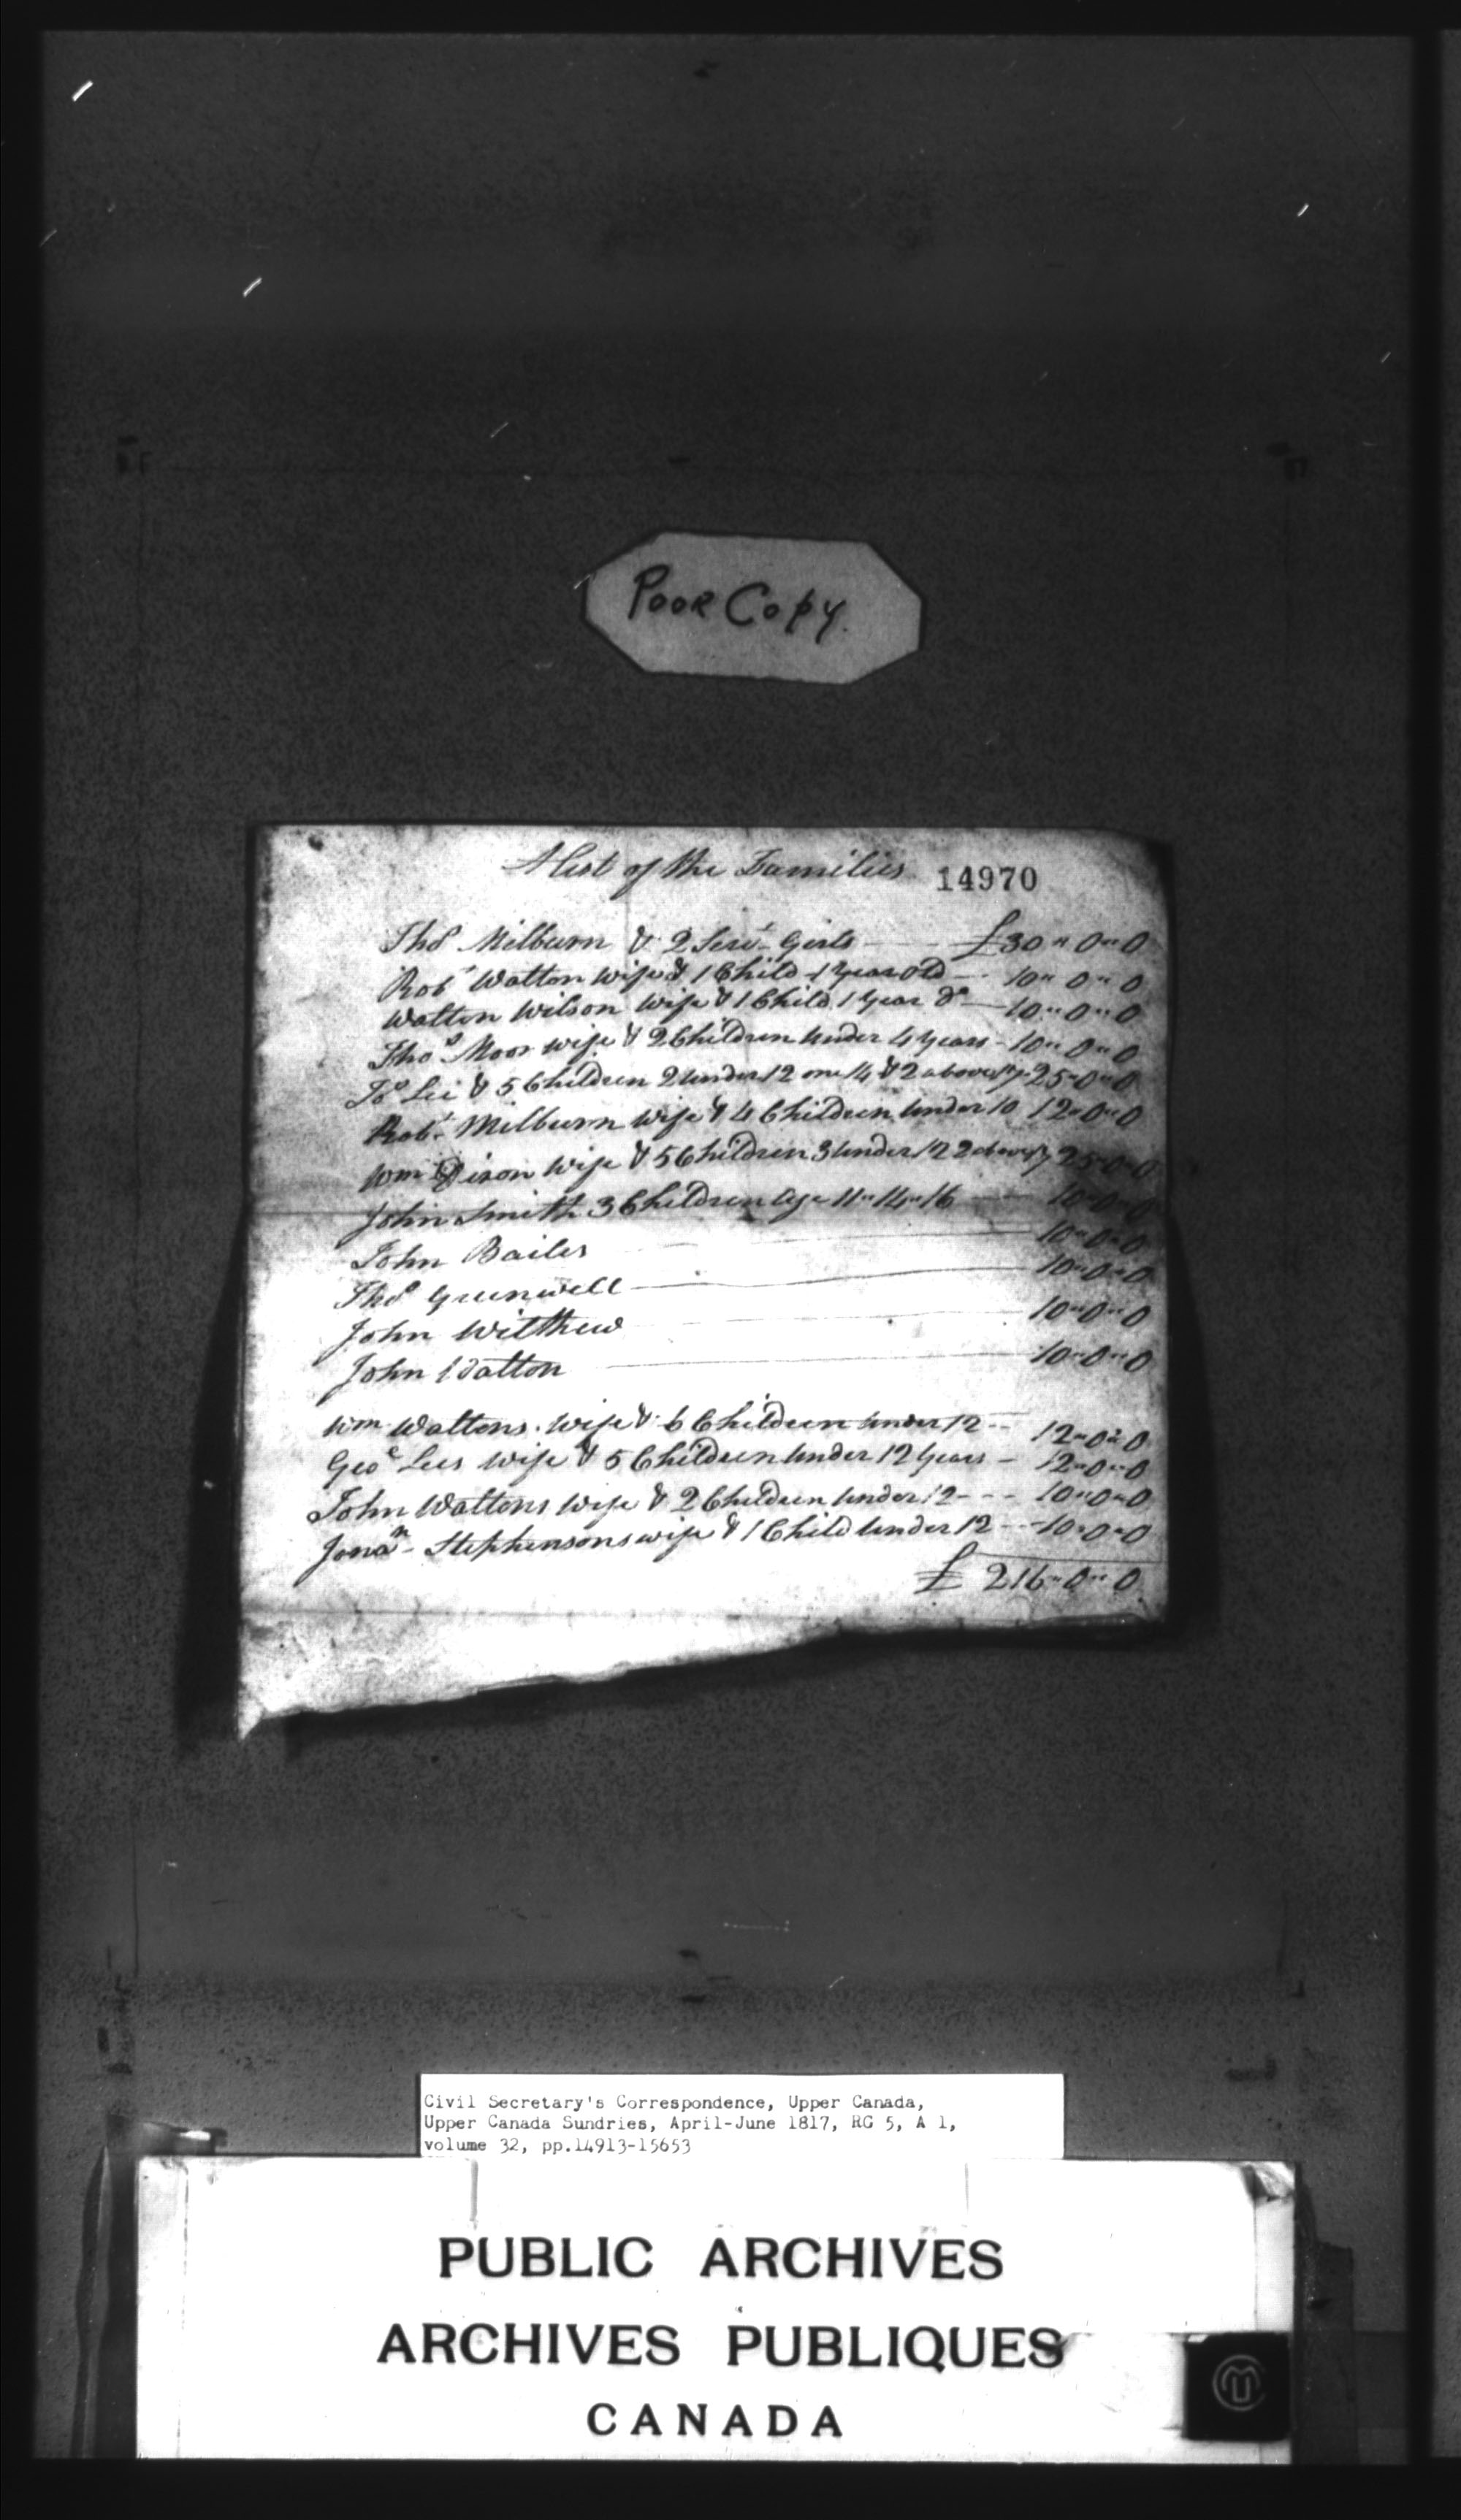 Poor Copy.
A List of the Families 14970
Thos Milburn & 2 Servt Girls — £30 " 0 " 0
Robt Watton wife & 1 Child 1 year old — 10 " 0 " 0
Watton Wilson wife & 1 Child 1 year do — 10 " 0 " 0
Thos Moor wife & 2 Children under 4 years - 10 " 0 " 0
Jo Lee & 5 Children 2 under 12 one 14 & 2 above 25 " 0 " 0
Robt Milburn wife & 4 Children under 10 12 " 0 " 0
Wm Dixon wife & 5 Children 3 under 12 2 above 25 " 0 " 0
John Smith 3 Children Age 11 " 14 " 16 — 10 " 0 " 0
John Bailes — 10 " 0 " 0
Thos Greenwell — 10 " 0 " 0
John Witthew — 10 " 0 " 0
John Watton — 10 " 0 " 0
Wm Wattons wife & 6 Children under 12 -- 12 " 0 " 0
Geoe Lees wife & 5 Children under 12 years - 12 " 0 " 0
John Wattons wife & 2 Children under 12 --- 10 " 0 " 0
Jonan Stephensons wife & 1 Child under 12 -- 10 " 0 " 0
£ 216 " 0 " 0
Civil Secretary's Correspondence, Upper Canada,
Upper Canada Sundries, April-June 1817, RG 5, A 1,
volume 32, pp.14913-15653
PUBLIC ARCHIVES
ARCHIVES PUBLIQUES
CANADA